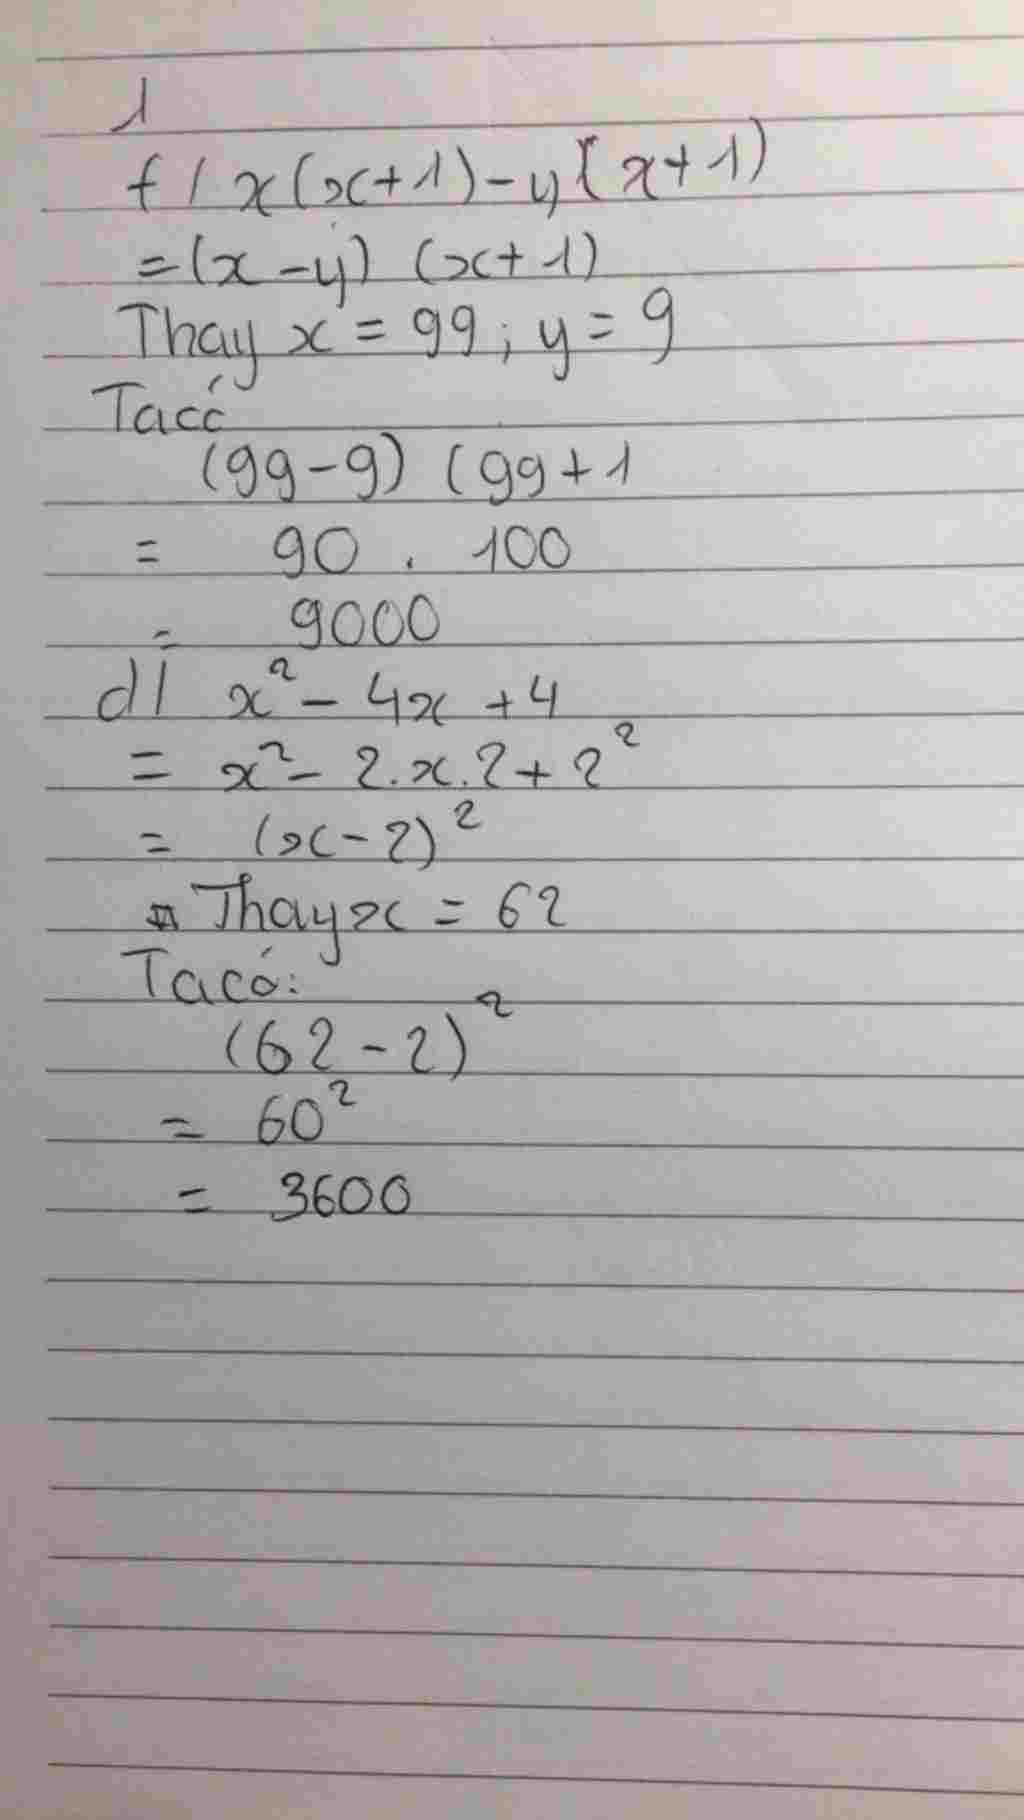 1
f / x(x+1)-y(x+1)
=(x-y) (x+1)
Thay x = 99; y = 9
Ta có
(99-9) (99+1
= 90 . 100
= 9000
d/ x² - 4x + 4
= x² - 2.x.2 + 2²
= (x-2)²
Thay x = 62
Ta có:
(62-2)²
= 60²
= 3600